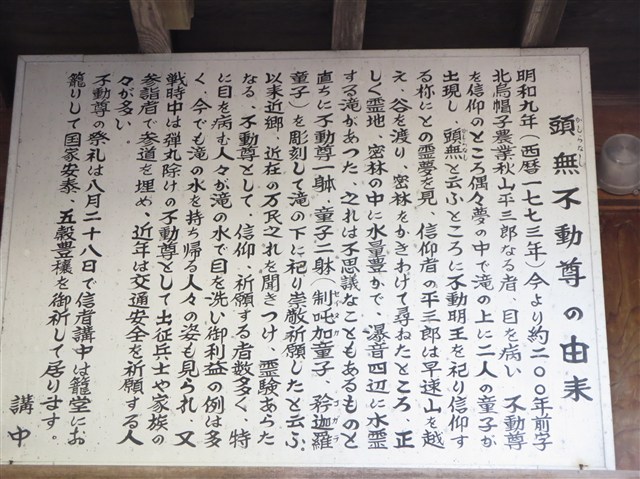 頭無不動尊の由来
かしらなし
明和九年（西暦一七七三年）今より約二〇〇年前字
北烏帽子農業秋山平三郎なる者、目を病い 不動尊
を信仰のところ偶々夢の中で滝の上に二人の童子が
出現し、頭無と云ふところに不動明王を祀り信仰す
かしらなし
る称にとの霊夢を見、信仰者の平三郎は早速山を越
え、谷を渡り、密林をかきわけて尋ねたところ、正
しく霊地、密林の中に水量豊かで、瀑音四辺に水霊
する滝があつた、之れは不思議なこともあるものと
直ちに不動尊一躰、童子二躰（制吒加童子、矜迦羅
童子）を彫刻して滝の下に祀り崇敬祈願したと云ふ。
以来近郷、近在の万民之れを聞きつけ、霊験あらた
なる、不動尊として、信仰、祈願する者数多く、特
に目を病む人々が滝の水で目を洗い御利益の例は多
く、今でも滝の水を持ち帰る人々の姿も見られ、又
戦時中は弾丸除けの不動尊として出征兵士や家族の
参詣者で参道を埋め、近年は交通安全を祈願する人
々が多い。
不動尊の祭礼は八月二十八日で信者講中は籠堂にお
籠りして国家安泰、五穀豊穣を御祈して居ります。
講中